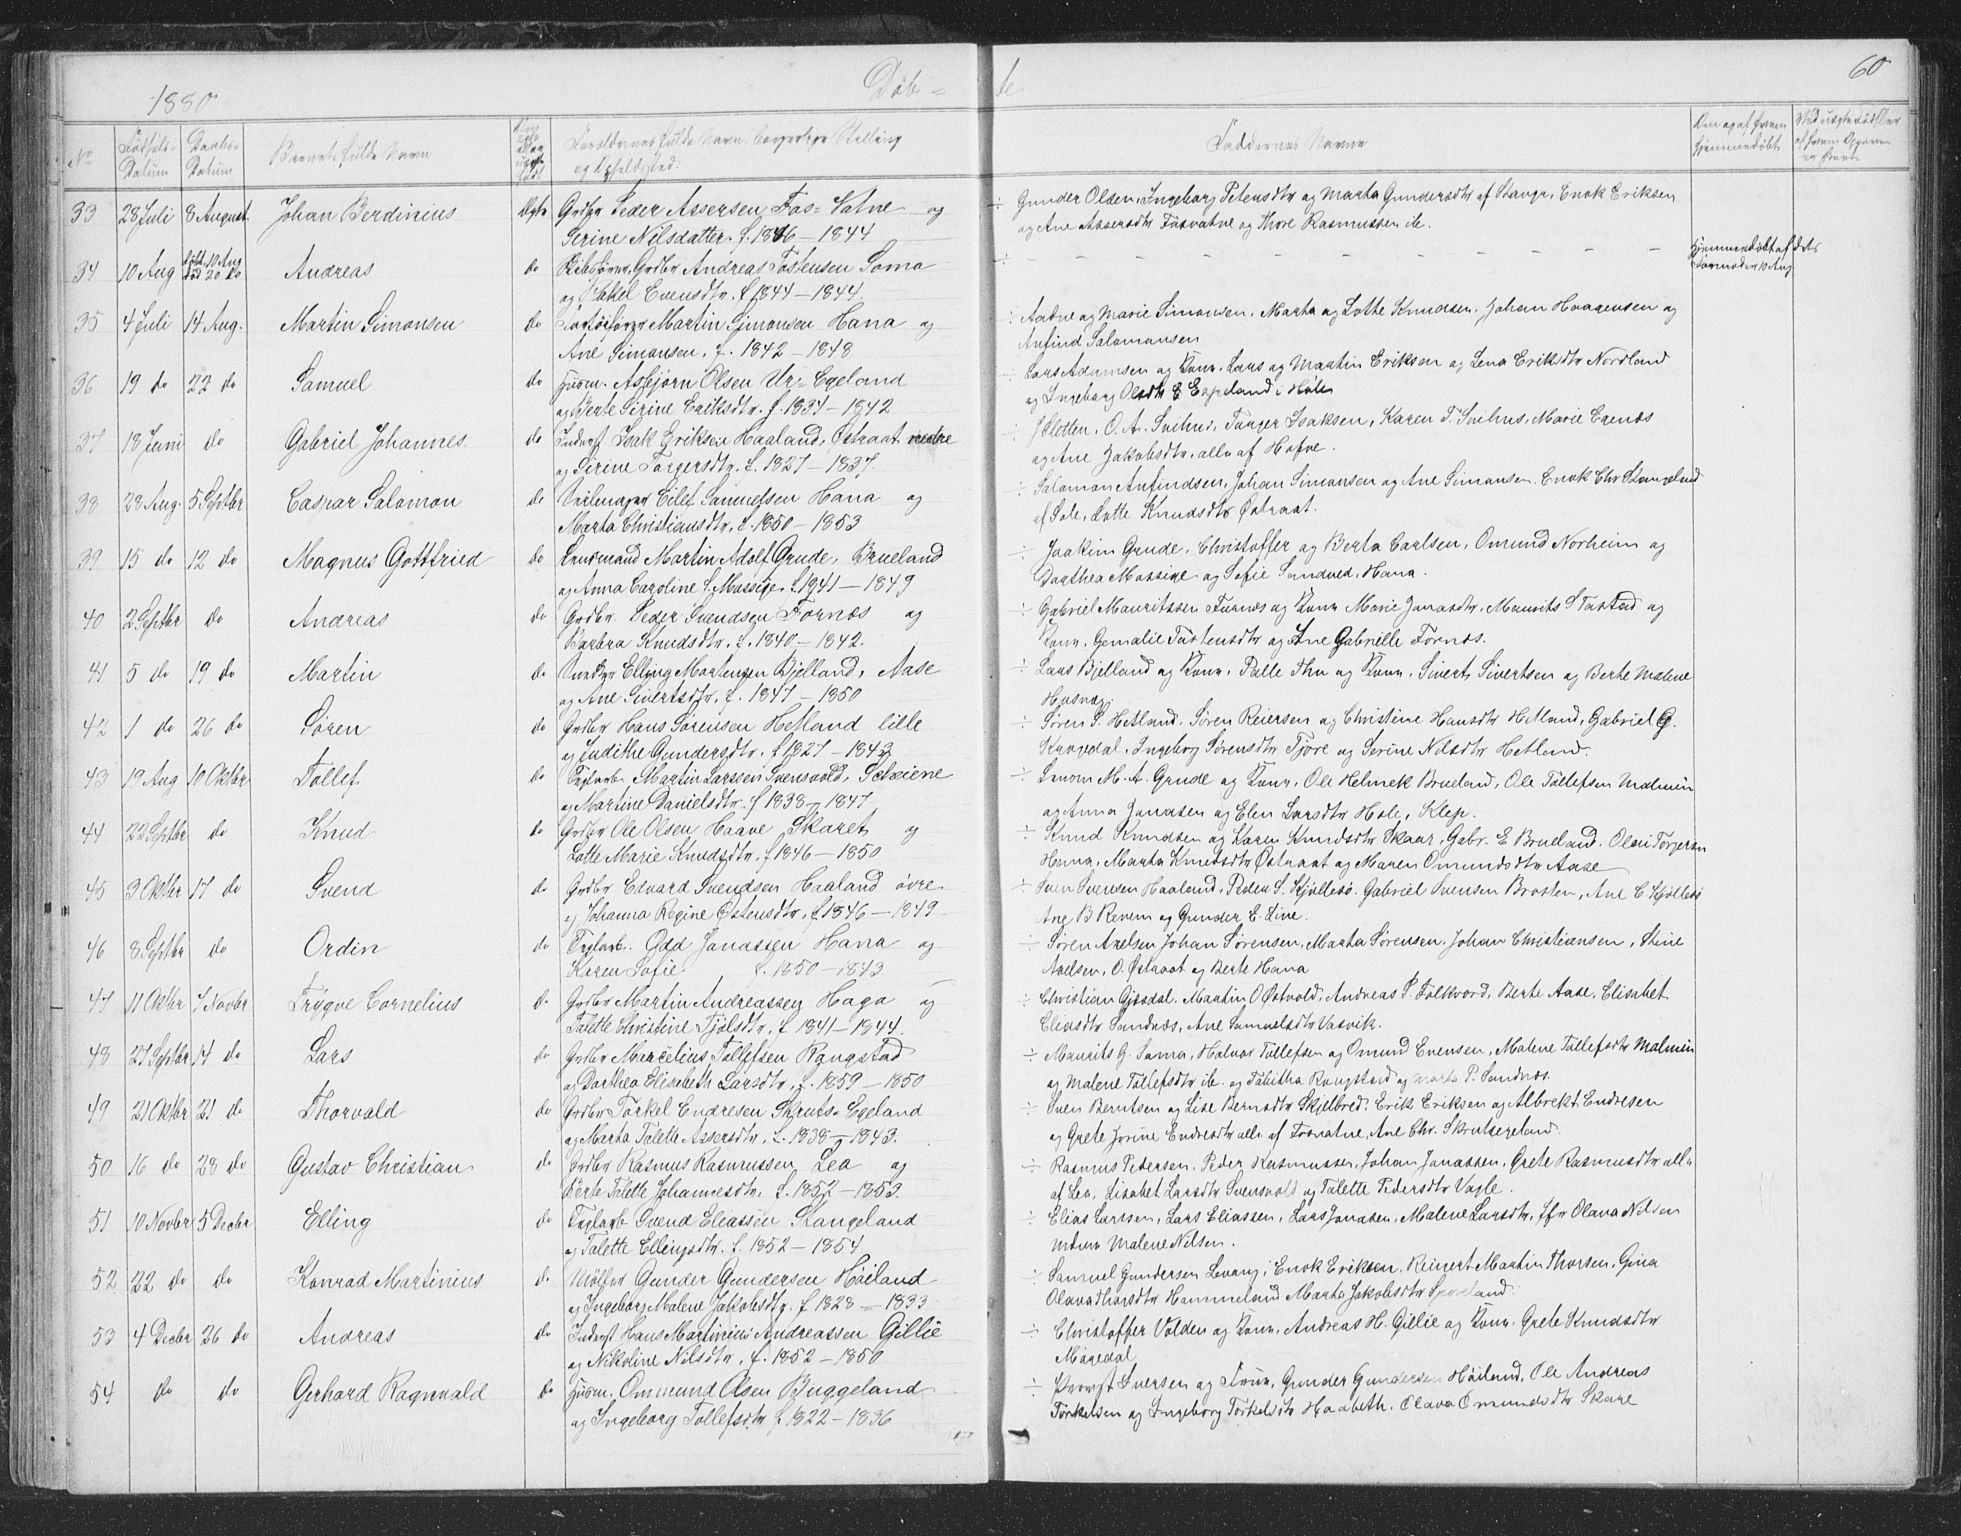 1880
Døb-
te
60
No
Fødsels-Datum
Daabs-Datum
Barnets fulde Navn
Forældrenes fulde Navn, borgerlige Stilling
og Opholdssted.
Faddernes Navne
33 28 Juli 8 August Johan Berdinius Ægte Grdbr Peder Assersen Fos-Vatne og
Serine Nilsdatter. f. 1846 - 1844
÷ Gunder Olsen, Ingeborg Petersdtr og Marta Gundersdtr af Stangv., Enok Eriksen
og Ane Assersdtr Fosvatne og Thore Rasmussen ib.
34 10 Aug døbt 10 Aug
død 20 do Andreas do Grdbr Andreas Tostensen Soma
og Rakel Evensdtr. f 1844 - 1844
÷ Hjemmedøbt af dets
10 Aug
35 4 Juli 14 Aug. Martin Simonsen do Martin Simonsen Hana og
Ane Simonsen. f. 1842 - 1848
÷ Aadne og Marie Simonsen, Marta og Lotte Knudsen, Johan Haagensen og
Anfind Salomonsen
36 19 do 22 do Samuel do Husm. Asbjørn Olsen Ur-Egeland
og Berte Sirine Eriksdtr. f. 1834 - 1842
÷ Lars Adamsen og Kone, Lars og Martin Eriksen og Lena Eriksdtr Nordland
og Ingeborg Olsdtr E Espeland i Høle
37 18 Juni do Gabriel Johannes do Inderst Isak Eriksen Haaland, Østraat nedre
og Sirine Torgersdtr. f. 1827 - 1837.
J Sletten, O. A. Svihus, Tønger Isaksen, Karen T. Svihus, Marie Egenæs
og Ane Jakobsdtr. alle af Hafve.
38 28 Aug. 5 Septbr Caspar Salomon do Eilef Samuelsen Hana og
Marta Christiansdtr. f. 1850 - 1853
÷ Salomon Anfindsen, Johan Simonsen og Ane Simonsen, Enok Chr Stangeland
af Sole, Lotte Knudsdtr Østraat.
39 15 do 12 do Magnus Gottfried do Lensmand Martin Adolf Grude, Brueland
og Anna Caroline f. Massige. f. 1841 - 1849
÷ Joakim Grude, Christoffer og Berta Carlsen, Omund Norheim og
Dorthea Massige og Sofie Sandved, Hana.
40 2 Septbr do Andreas do Grdbr Peder Svendsen Fornæs og
Barbra Knudsdtr. f. 1840 - 1842.
÷ Gabriel Mauritssen Furnæs og Kone Marie Jonasdtr, Maurits S Tastad og
Kone, Gemalie Tostensdtr og Ane Gabrielle Fornæs.
41 5 do 19 do Martin do Elling Martensen Bjelland, Aase
og Ane Sivertsdtr. f. 1847 - 1850
÷ Lars Bjelland og Kone, Palle Thu og Kone, Sivert Sivertsen og Berte Malene
Husvæg
42 1 do 26 do Søren do Grdbr Hans Sørensen Hetland lille
og Judithe Gundersdtr. f 1827 - 1843
÷ Søren S. Hetland, Søren Reiersen og Christine Hansdtr Hetland, Gabriel G.
Krogedal, Ingeborg Sørensdtr Tjøre og Serine Nilsdtr Hetland.
43 19 Aug 10 Oktbr Tollef do Teglarb. Martin Larssen Svensvold, Scheiene
og Martine Danielsdtr. f 1838 - 1847
÷ Lensm M. A. Grude og Kone, Ole Helmek Brueland, Ole Tollefsen Malmin
og Anna Jonassen og Elen Larsdtr Hole, Klep.
44 22 Septbr do Knud do Grdbr Ole Olsen Haave Skaret og
Lotte Marie Knudsdtr. f 1846 - 1850
÷ Knud Knudsen og Karen Knudsdtr Skaar, Gabr. E Brueland, Olen Torjersen
Hana, Marta Knudsdtr Østraat og Maren Omundsdtr Aase
45 3 Oktbr 17 do Svend do Grdbr Edvard Svendsen Haaland øvre
og Johanna Regine Østensdtr. f 1846 - 1849
÷ Sven Svensen Haaland, Peder S. Kjøllesø, Gabriel Svensen Brosten, Ane C. Kjøllesø
Ane B Revem og Gunder E. Line.
46 8 Septbr do Ordin do Teglarb. Odd Jonassen Hana og
Karen Sofie f. 1850 - 1843
÷ Søren Axelsen Johan Sørensen, Marta Sørensen, Johan Christiansen, Stine
Axelsen, O. Østraat og Berte Hana
47 11 Oktbr 7 Novbr Trygve Cornelius do Grdbr Martin Andreassen Haga og
Talette Christine Tjølsdtr. f 1841 - 1844.
÷ Christian Gjesdal, Martin O Østvold, Andreas P. Folkvord, Berte Aase, Elisabet
Eliasdtr Sandnæs, Ane Samuelsdtr Vasvik.
48 27 Septbr 14 do Lars do Grdbr Marcelius Tollefsen Rongstad
og Dorthea Elisabeth Larsdtr. f. 1859 - 1850
÷ Maurits G. Soma, Halvor Tollefsen og Omund Evensen, Malene Tollefsdtr Malmin
og Malene Tollefsdtr ib. og Tabitha Rongstad og Marta P. Sandnæs.
49 21 Oktbr 21 do Thorvald do Grdbr Torkel Endresen Skruts-Egeland
og Marta Talette Assersdtr. f. 1838 - 1843.
÷ Sven Berntsen og Lise Berntsdtr Skjelbred, Erik Eriksen og Albrekt Endresen
og Grete Jorine Endresdtr alle af Fosvatne, Ane Chr. Skrutsegeland.
50 16 do 28 do Gustav Christian do Grdbr Rasmus Rasmussen Lea og
Berte Talette Johannesdtr. f. 1852 - 1853.
÷ Rasmus Pedersen, Peder Rasmussen, Johan Jonassen, Grete Rasmusdtr alle
af Lea, Lisabet Larsdtr Svensvold og Talette Pedersdtr Vagle.
51 10 Novbr 5 Decbr Elling do Teglarb Svend Eliassen Stangeland
og Talette Ellingsdtr. f. 1852 - 1854
÷ Elias Larssen, Lars Eliassen, Lars Jonassen, Malene Larsdtr, Olava Nilsen
Malene Nilsen.
52 22 do do Konrad Martinius do Gunder Gundersen Høiland
og Ingeborg Malene Jakobsdtr. f 1828 - 1833
÷ Samuel Gundersen Levang, Enok Eriksen, Reinert Martin Thorsen, Gina
Olava Thorsdtr Hammeland Marta Jakobsdtr
53 4 Decbr 26 do Andreas do Inderst Hans Martinius Andreassen Gillie
og Nikoline Nilsdtr. f. 1852 - 1850
÷ Christoffer Volden og Kone, Andreas H. Gillie og Kone, Grete Knudsdtr
Møgedal
54 do do Gerhard Ragnvald do Husm. Ommund Olsen Buggeland
og Ingeborg Tollefsdtr f 1822 - 1836
÷ Provst Iversen og Frue, Gunder Gundersen Høiland, Ole Andreas
Torkelsen og Ingeborg Torkelsdtr Hoabeth, Olava Omundsdtr Skare